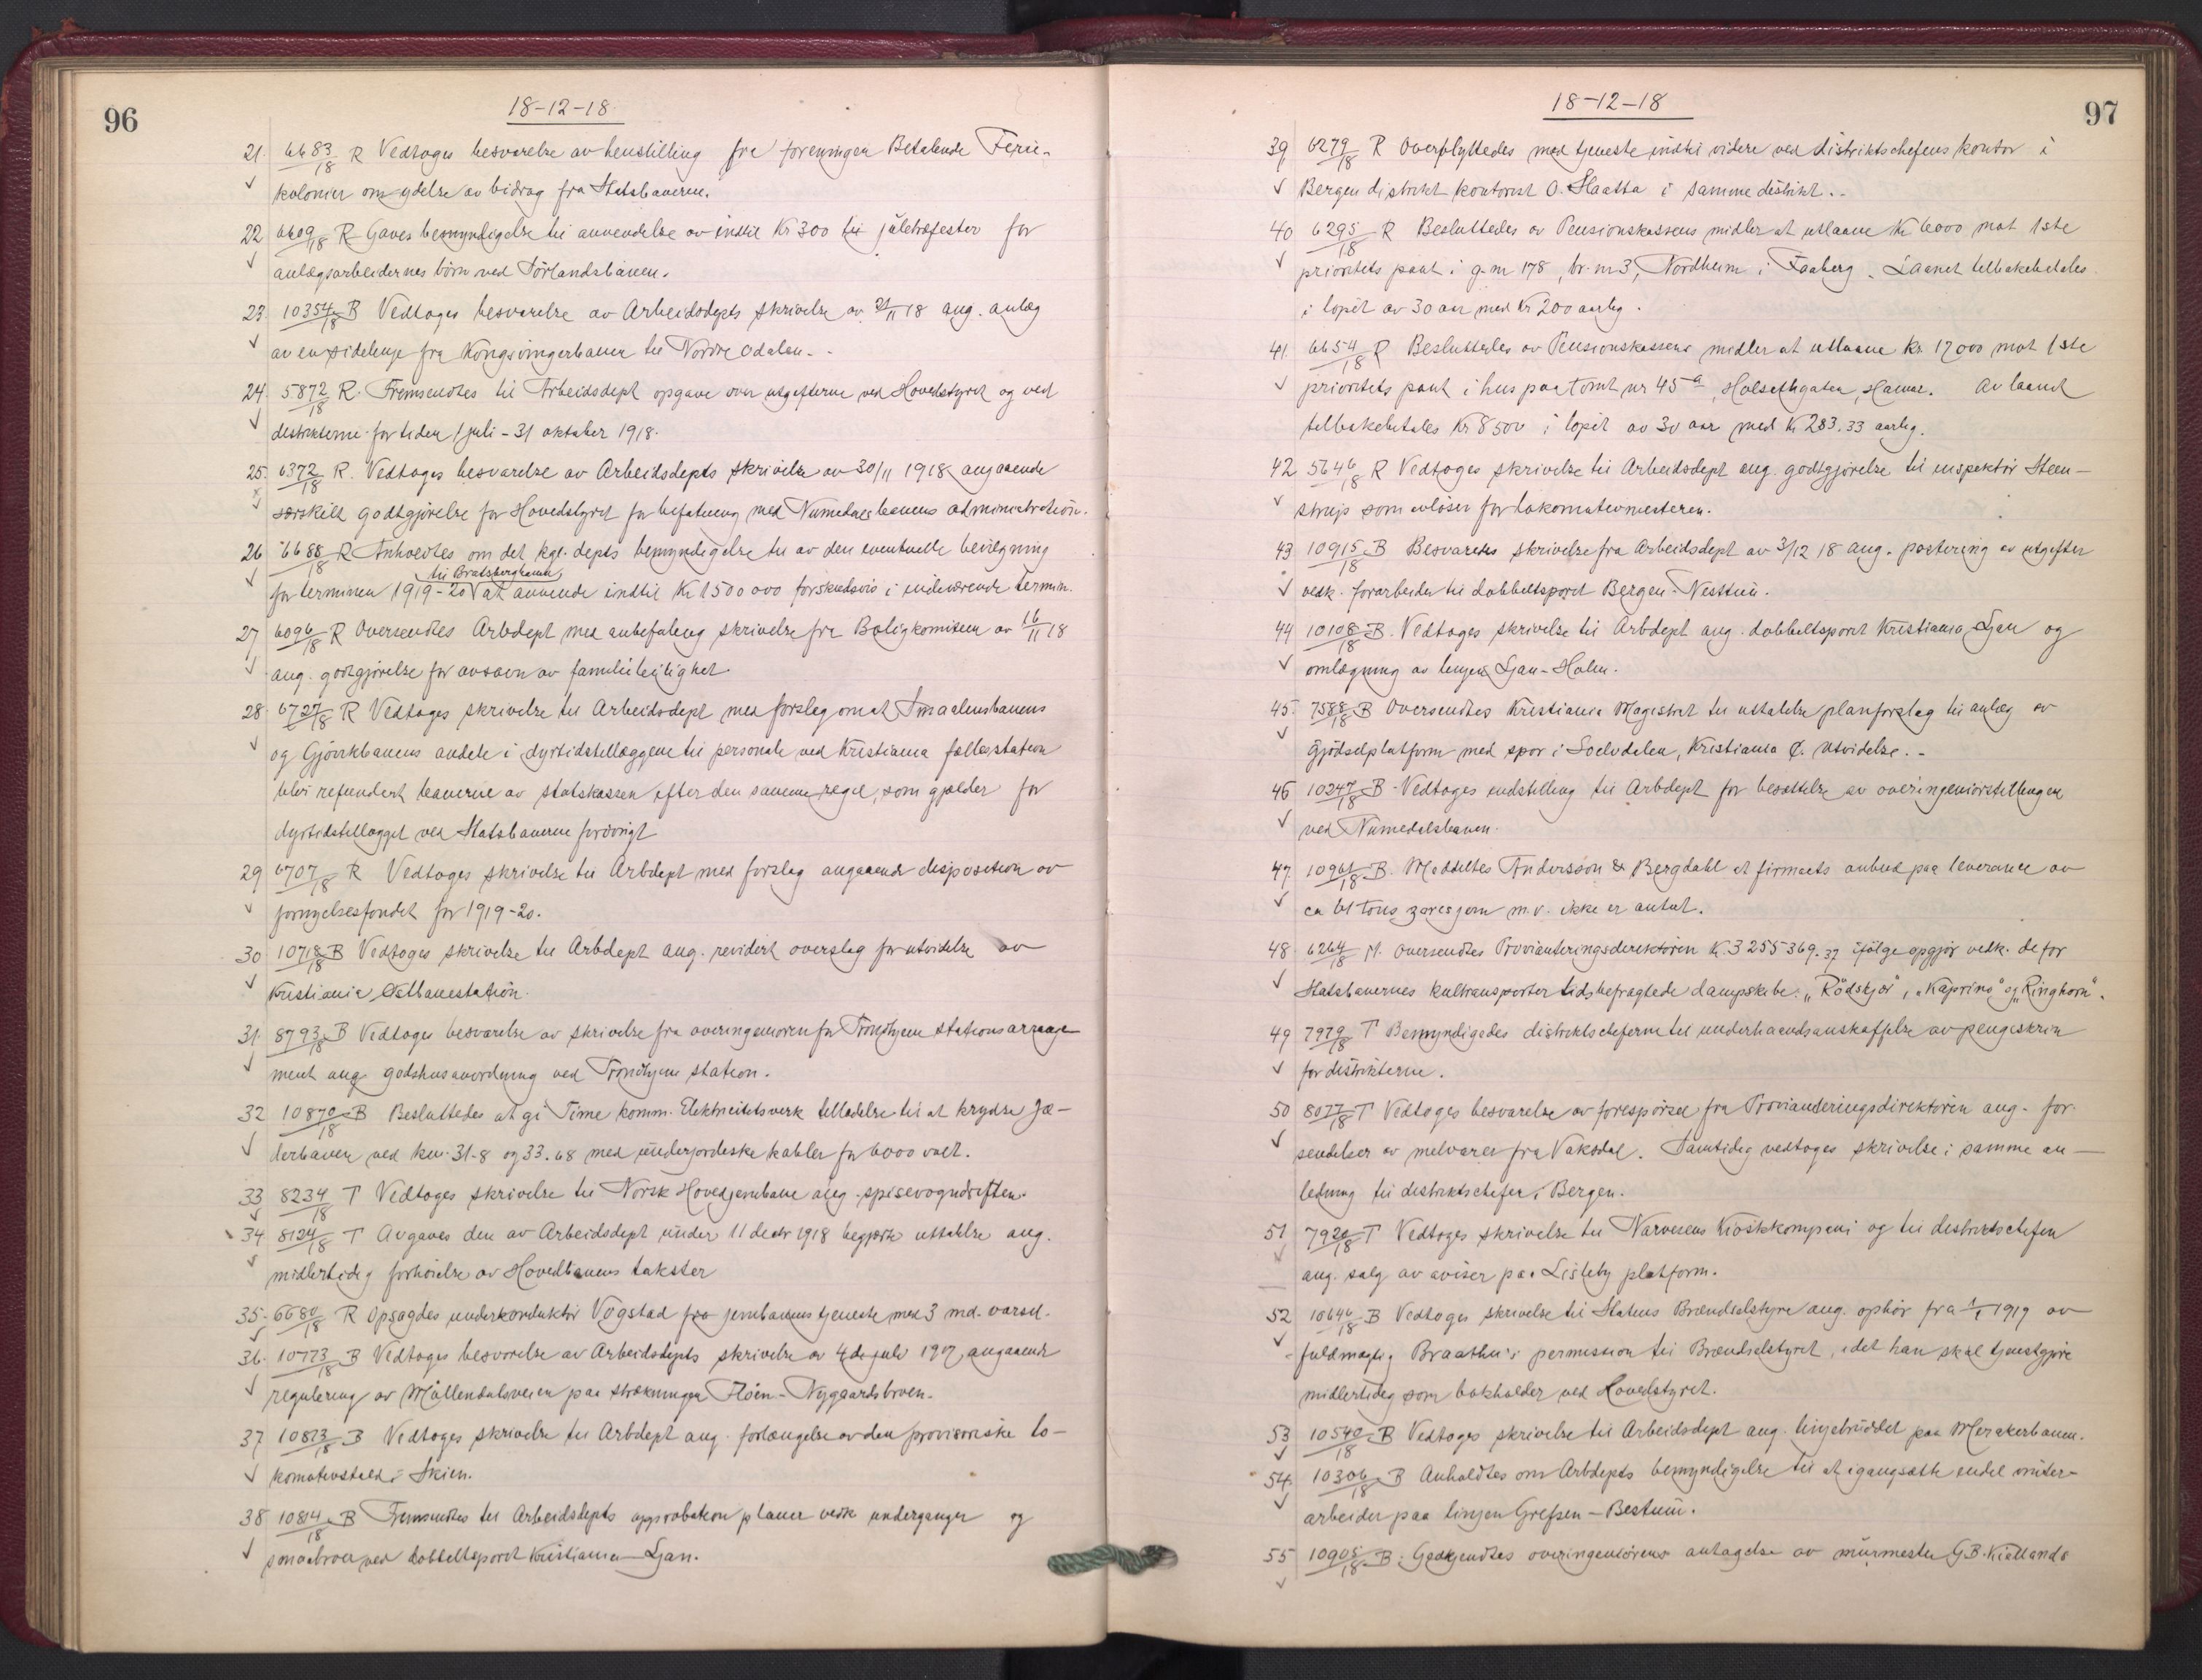 96
18-12-18.
21. 6683/18 R Vedtoges besvarelse av henstilling fra foreningen Betalende Ferie-
kolonier om ydelse av bidrag fra Statsbanerne.
22 6609/18 R Gaves bemyndigelse til anvendelse av indtil Kr 300 til juletræfester for
anlægsarbeidernes børn ved Sørlandsbanen.
23. 10354/18 B Vedtoges besvarelse av Arbeidsdepts skrivelse av 21/11 18 ang. anlæg
av en sidelinje fra Kongsvingerbanen til Nordre Odalen. -
24. 5872/18 R. Fremsendtes til Arbeidsdept opgave over utgifterne ved Hovedstyret og ved
distrikterne for tiden 1 juli - 31 oktober 1918.
25. 6372/18 R. Vedtoges besvarelse av Arbeidsdepts skrivelse av 30/11 1918 angaaende
særskilt godtgjørelse for Hovedstyret for befatning med Numedalsbanens administration.
26 6688/18 R Anholdtes om det kgl. depts bemyndigelse til av den eventuelle bevilgning
for terminen 1919-20 til Bratsbergbanen at anvende indtil Kr 1500 000 forskudsvis i indeværende termin.
27 6096/18 R Oversendtes Arbdept med anbefaling skrivelse fra Boligkomiteen av 16/11 18
ang. godtgjørelse for avsavn av familieleilighet
28. 6727/18 R Vedtoges skrivelse til Arbeidsdept med forslag om at Smaalensbanens
og Gjøvikbanens andele i dyrtidstillæggene til personale ved Kristiania fællesstation
blir refundert banerne av statskassen efter den samme regel, som gjælder for
dyrtidstillægget ved Statsbanerne forøvrigt
29 6707/18 R Vedtoges skrivelse til Arbdept med forslag angaaende disposition av
fornyelsesfondet for 1919-20.
30 10718/18 B Vedtoges skrivelse til Arbdept ang. revidert overslag for utvidelse av
Kristiania Østbanestation.
31. 8793/18 B Vedtoges besvarelse av skrivelse fra overingeniøren for Trondhjem stationsarrange-
ment ang godshusanordning ved Trondhjem station.
32 10870/18 B Besluttedes at gi Time komm. Elektricitetsverk tilladelse til at krydse Jæ-
derbanen ved km. 31-8 og 33.68 med underjordiske kabler for 6000 volt.
33 8234/18 T Vedtoges skrivelse til Norsk Hovedjernbane ang. spisevogndriften.
34 8124/18 T Avgaves den av Arbeidsdept under 11 decbr 1918 begjærte uttalelse ang.
midlertidig forhøielse av Hovedbanens takster
35. 6680/18 R Opsagdes underkonduktør Vogstad fra jernbanens tjeneste med 3 md. varsel.
36. 10773/18 B Vedtoges besvarelse av Arbeidsdepts skrivelse av 4de juli 1917, angaaende
regulering av Møllendalsveien paa strækningen Fløen - Nygaardsbroen.
37 10823/18 B Vedtoges skrivelse til Arbdept ang. forlængelse av den provisoriske lo-
komotivstald i Skien.
38 10814/18 B Fremsendtes til Arbeidsdepts approbation planer vedk underganger og
smaabroer ved dobbeltsporet Kristiania - Ljan.
97
18-12-18
39 6279/18 R Overflyttedes med tjeneste indtil videre ved distriktschefens kontor i
Bergen distrikt kontorist O. Skatta i samme distrikt. -
40 6295/18 R Besluttedes av Pensionskassens midler at utlaane Kr 6000 mot 1ste
prioritets pant i g.nr 178, br.nr 3, Nordheim i Faaberg. Laanet tilbakebetales
i løpet av 30 aar med Kr 200 aarlig.
41. 6654/18 R Besluttedes av Pensionskassens midler at utlaane Kr. 17000 mot 1ste
prioritets pant i hus paa tomt nr 45a, Holsethgaten, Hamar. Av laanet
tilbakebetales Kr 8500 i løpet av 30 aar med Kr 283.33 aarlig.
42 5646/18 R Vedtoges skrivelse til Arbeidsdept ang. godtgjørelse til inspektør Steen-
strup som avløser for lokomotivmesteren.
43 10915/18 B Besvaredes skrivelse fra Arbeidsdept av 3/12 18 ang. postering av utgifter
vedk. forarbeider til dobbeltsporet Bergen - Nesttun.
44 10108/18 B. Vedtoges skrivelse til Arbdept ang. dobbeltsporet Kristiania Ljan og
omlægning av linjen Ljan-Holm.
45. 7588/18 B Oversendtes Kristiania Magistrat til uttalelse planforslag til anlæg av
gjødselplatform med spor i Loelvdalen, Kristiania Ø. Utvidelse. -
46 10247/18 B - Vedtoges indstilling til Arbdept for besættelse av overingeniørstillingen
ved Numedalsbanen.
47. 10961/18 B. Meddeltes Andersson & Bergdahl at firmaets anbud paa leverance av
ca 61 tons zoresjern m.v. ikke er antat.
48. 6264/18 M. Oversendtes Provianteringsdirektøren Kr. 3 255 369.37 ifølge opgjør vedk. de for
Statsbanernes kultransporter tidsbefragtede dampskibe: "Rødskjær", "Kaprino" og "Ringhorn".
49 7979/18 T Bemyndigedes distriktscheferne til underhaandsanskaffelse av pengeskrin
for distrikterne.
50 8077/18 T Vedtoges besvarelse av forespørsel fra Provianteringsdirektøren ang. for-
sendelser av melvarer fra Vaksdal. Samtidig vedtoges skrivelse i samme an-
ledning til distriktschefen i Bergen.
51 7920/18 T Vedtoges skrivelse til Narvesens Kioskkompani og til distriktschefen
ang. salg av aviser paa Lisleby platform.
52 10644/18 B Vedtoges skrivelse til Statens Brændselstyre ang. ophør fra 1/1 1919 av
fuldmægtig Braathu's permission til Brændselstyret, idet han skal tjenestgjøre
midlertidig som bokholder ved Hovedstyret.
53 10540/18 B Vedtoges skrivelse til Arbeidsdept ang. linjebruddet paa Merakerbanen.
54. 10306/18 B Anholdtes om Arbdepts bemyndigelse til at igangsætte endel vinter-
arbeider paa linjen Grefsen - Bestum.
55 10905/18 B. Godkjendtes overingeniørens antagelse av murmester G.B. Kiellands